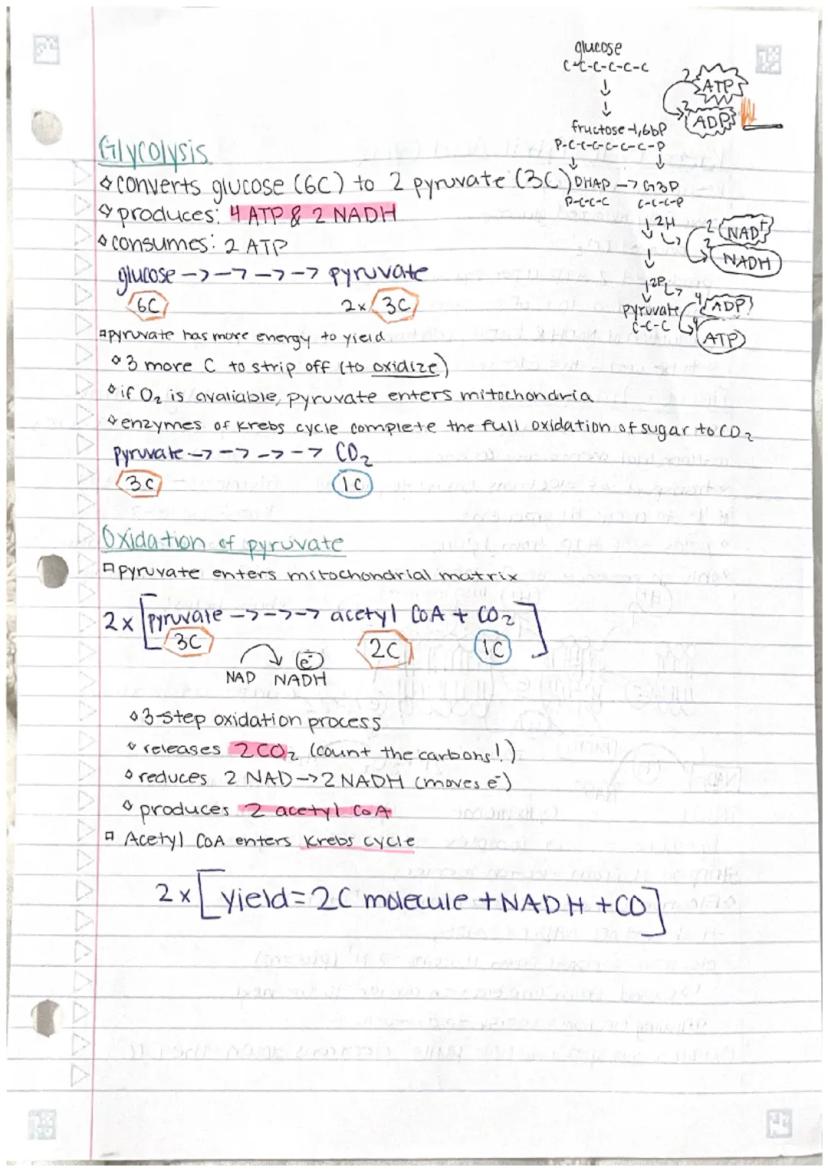 glucose
C-C-C-C-C-C
2 ATP
2 ADP
fructose-1,6bP
P-C-C-C-C-C-C-P
Glycolysis
converts glucose (6C) to 2 pyruvate (3C)
DHAP → G3P
P-C-C-C C-C-C-P
produces: 4 ATP & 2 NADH
2H
2 NAD+
2 NADH
consumes: 2 ATP
glucose →→→→ pyruvate
6C 2x 3C
2Pi
pyruvate
C-C-C
4 ADP
4 ATP
pyruvate has more energy to yield
3 more C to strip off (to oxidize)
if O₂ is avaliable, pyruvate enters mitochondria
enzymes of Krebs cycle complete the full oxidation of sugar to CO₂
pyruvate →→→→ CO₂
3C 1C
Oxidation of pyruvate
pyruvate enters mitochondrial matrix
2x [pyruvate →→→ acetyl CoA + CO₂]
3C 2C 1C
e⁻
NAD NADH
3-step oxidation process
releases 2CO₂ (count the carbons!)
reduces 2 NAD → 2 NADH (moves e⁻)
produces 2 acetyl CoA
Acetyl CoA enters Krebs cycle
2x [yield = 2C molecule + NADH + CO]